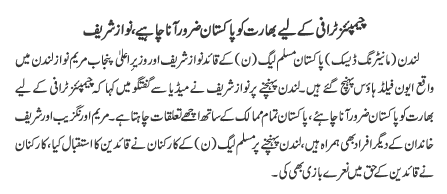 چیمپئنز ٹرافی کے لیے بھارت کو پاکستان ضرور آنا چاہیے، نواز شریف
لندن (مانیٹرنگ ڈیسک) پاکستان مسلم لیگ (ن) کے قائد نواز شریف اور وزیراعلیٰ پنجاب مریم نواز لندن میں
واقع ایون فیلڈ ہاؤس پہنچ گئے ہیں۔ لندن پہنچنے پر نواز شریف نے میڈیا سے گفتگو میں کہا کہ چیمپئنز ٹرافی کے لیے
بھارت کو پاکستان ضرور آنا چاہئے، پاکستان تمام ممالک کے ساتھ اچھے تعلقات چاہتا ہے۔ مریم اورنگزیب اور شریف
خاندان کے دیگر افراد بھی ہمراہ ہیں، لندن پہنچنے پر مسلم لیگ (ن) کے کارکنان نے قائدین کا استقبال کیا، کارکنان
نے قائدین کے حق میں نعرے بازی بھی کی۔